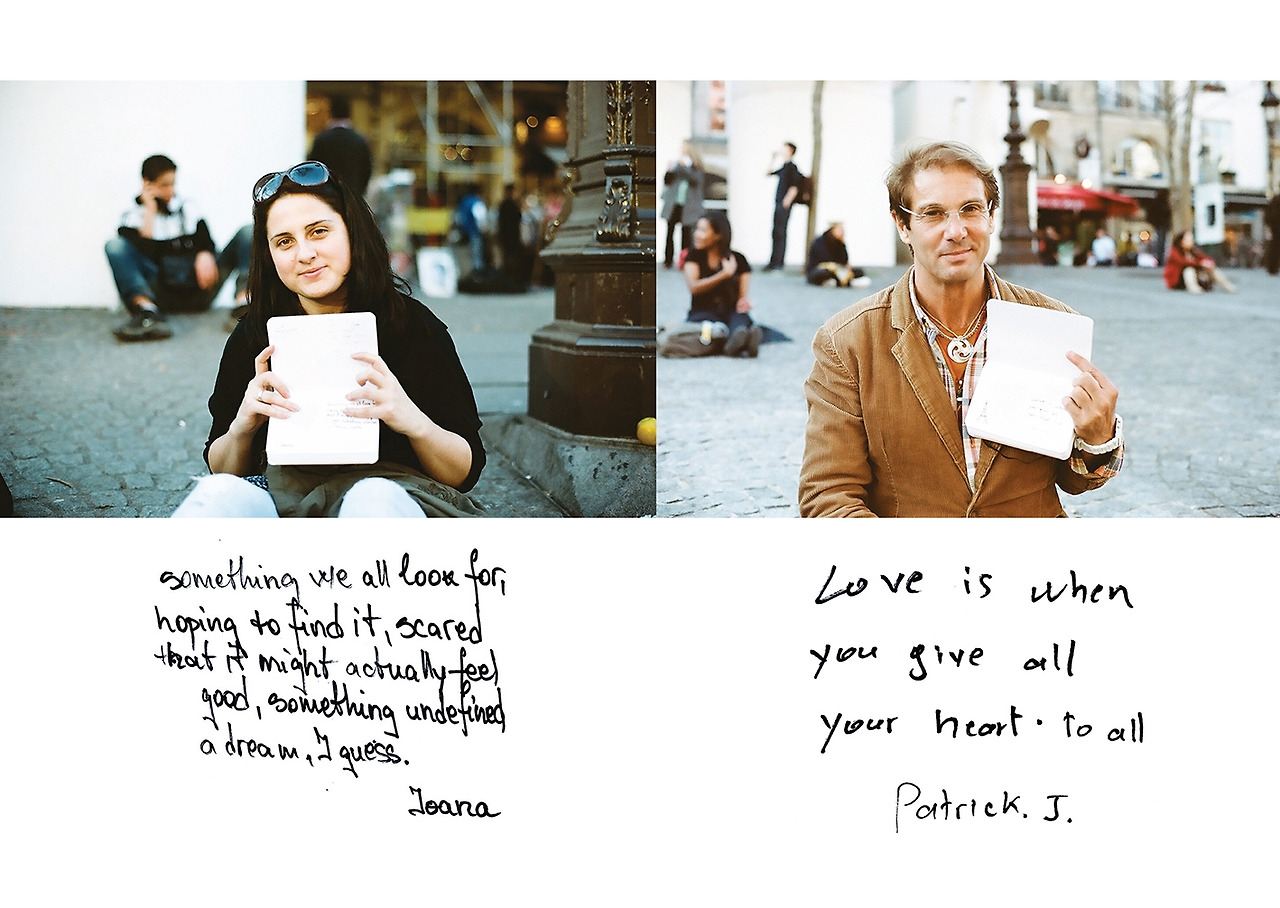 something we all look for,
hoping to find it, scared
that it might actually feel
good, something undefined
a dream, I guess.
Ioana
Love is when
you give all
your heart. to all
Patrick. J.